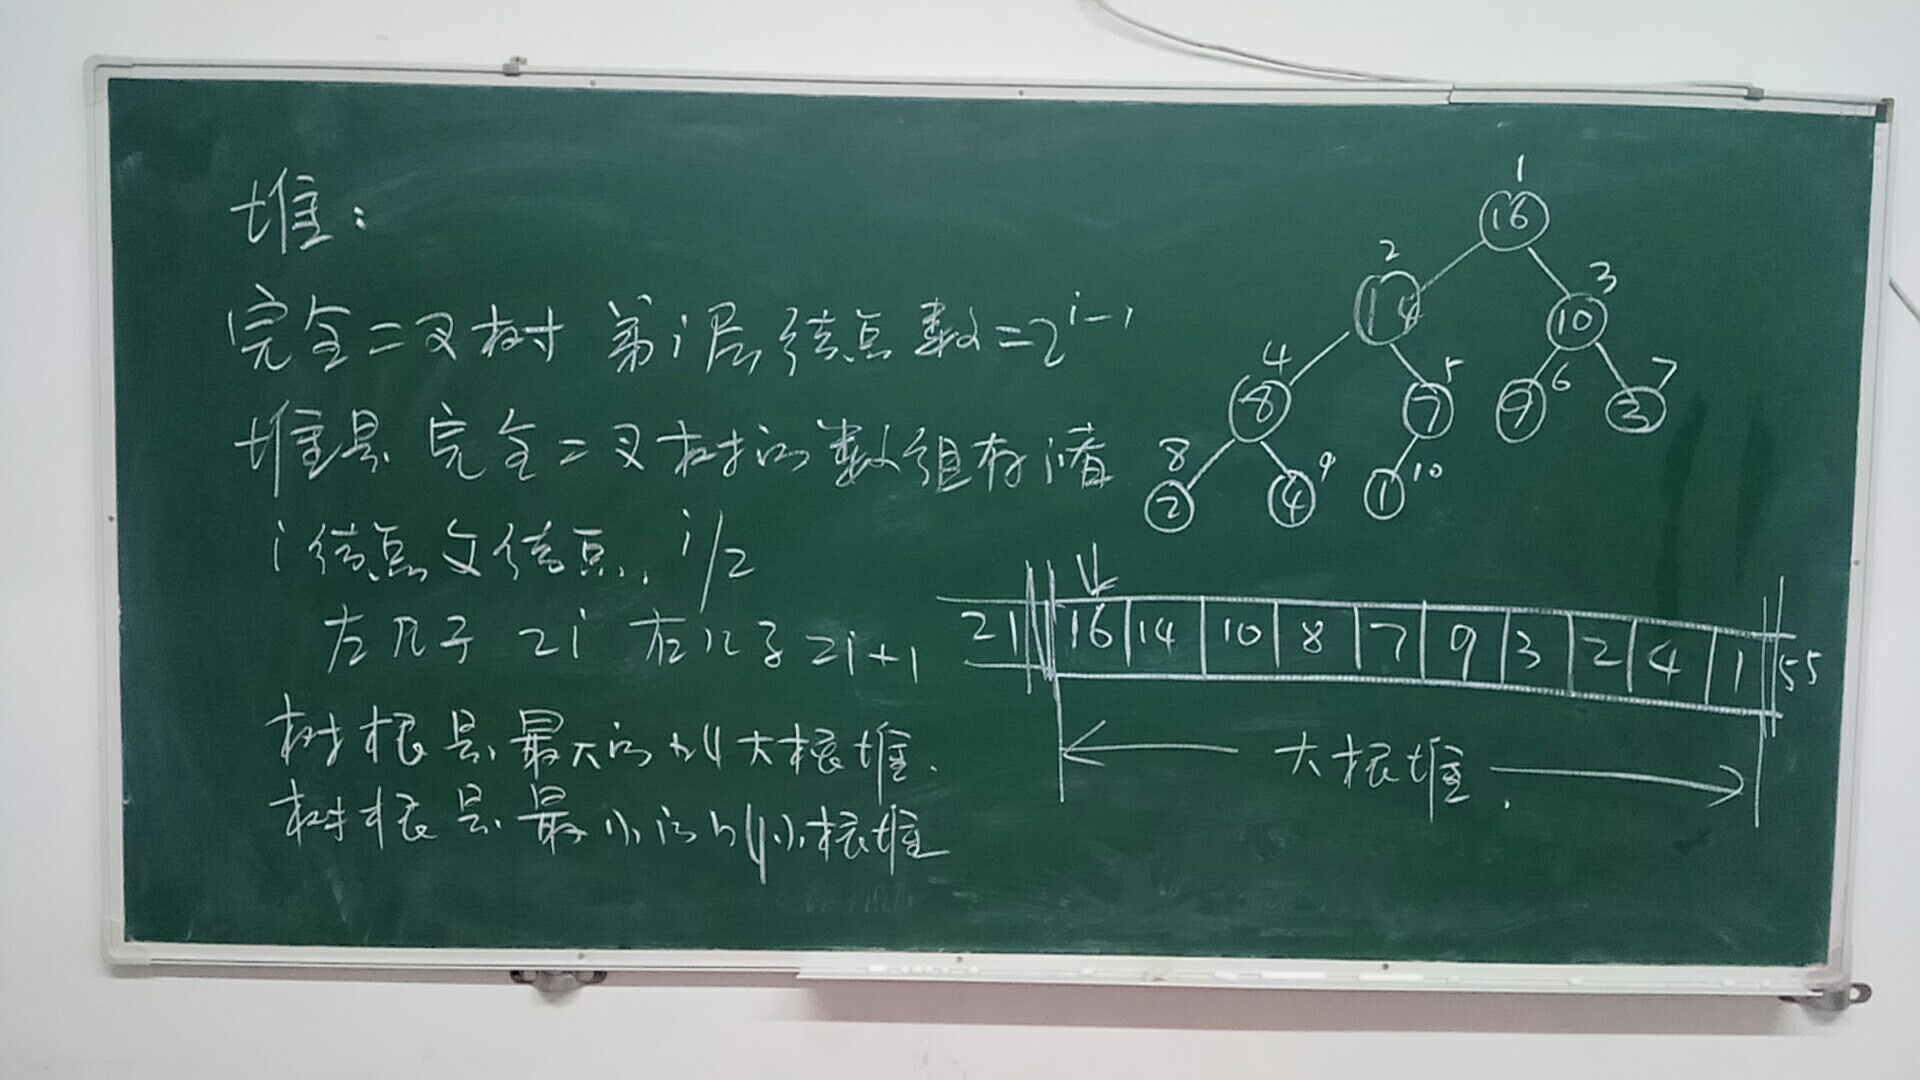 堆:
完全二叉树 第i层结点数=2^{i-1}
堆是完全二叉树的数组存储
i结点父结点, i/2
左儿子 2i 右儿子 2i+1
树根是最大的叫大根堆.
树根是最小的叫小根堆
1
16
2 3
14 10
4 5 6 7
8 7 9 3
8 9 10
2 4 1
21 16 14 10 8 7 9 3 2 4 1 55
大根堆.